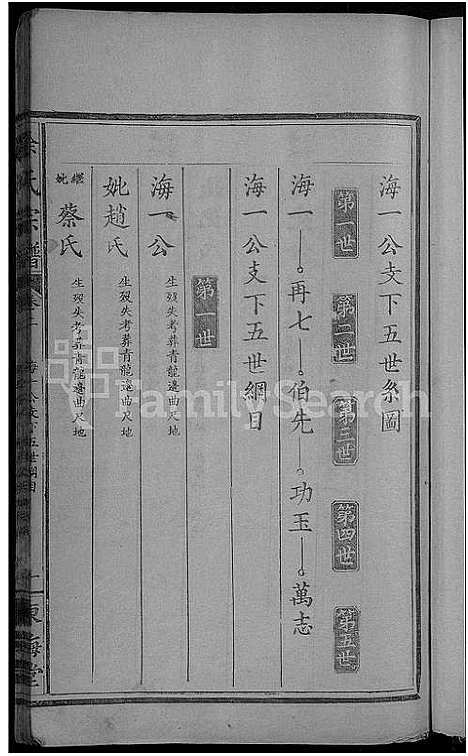 海一公支下五世系圖
第一世 第二世 第三世 第四世 第五世
海一 再七 伯先 功玉 萬志
海一公支下五世綱目
第一世
海一公 生歿失考葬青龍邉曲尺地
妣趙氏 生歿失考葬青龍邉曲尺地
繼妣蔡氏 生歿失考葬青龍邉曲尺地
徐氏宗譜 海一公支下五世 東海堂
FamilySearch